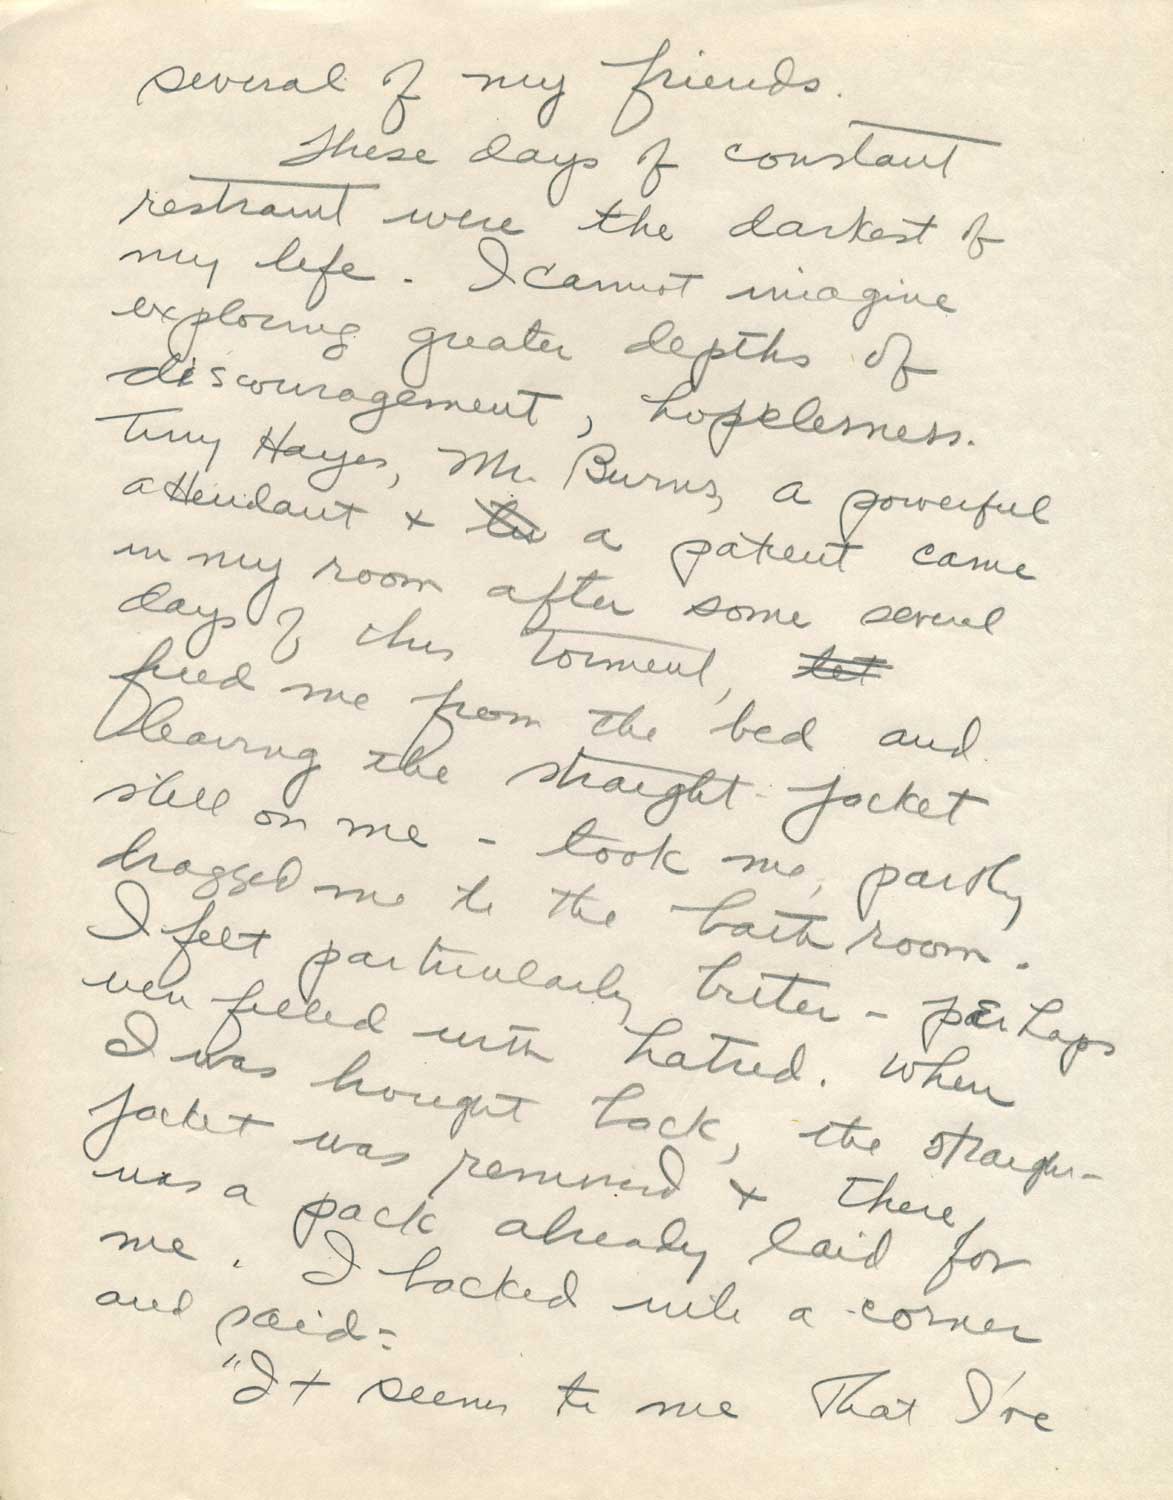 several of my friends.
These days of constant
restraint were the darkest of
my life. I cannot imagine
exploring greater depths of
discouragement, hopelessness.
Tiny Hayes, Mr. Burns, a powerful
attendant + a patient came
in my room after some several
days of this torment, let
freed me from the bed and
leaving the straight-jacket
still on me - took me, partly
dragged me to the bath room.
I felt particularly bitter - perhaps
even filled with hatred. When
I was brought back, the straight-
jacket was removed + there,
was a pack already laid for
me. I backed into a corner
and said:
"It seems to me that I've